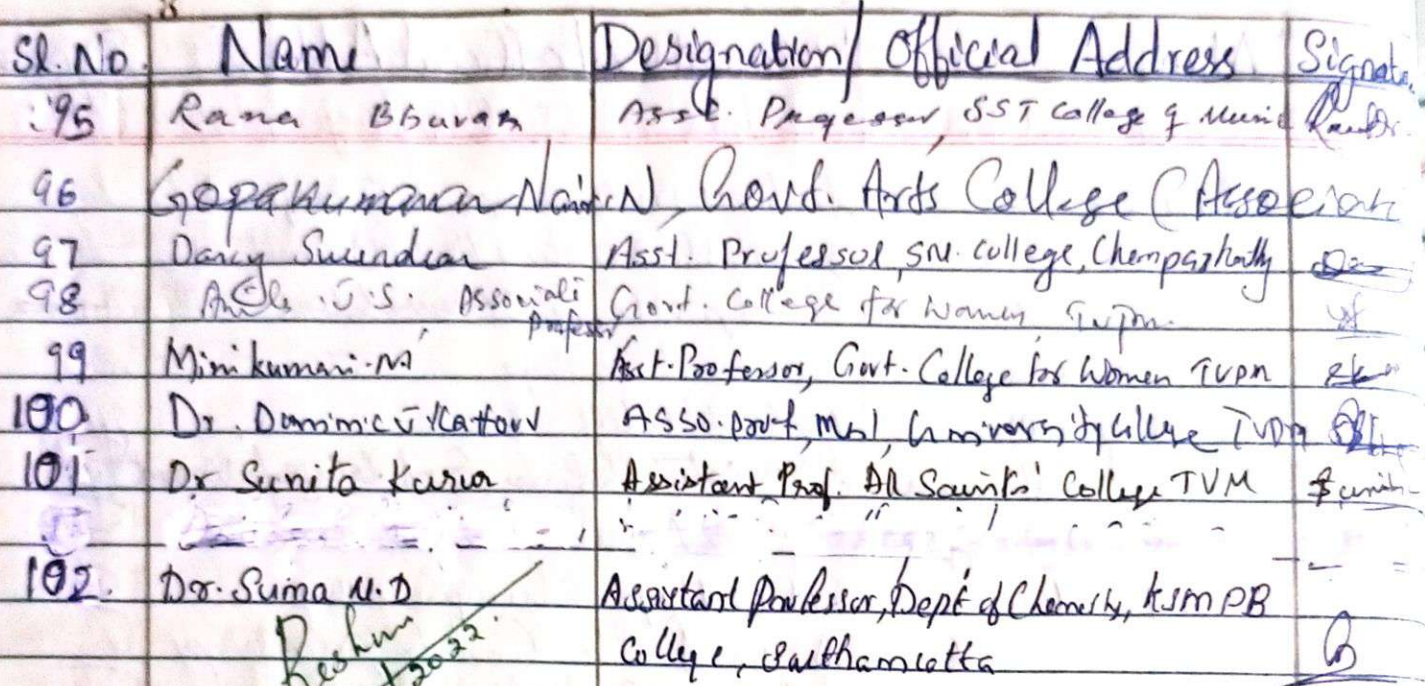 Sl. No. Name Designation/ Official Address Signatu
95 Rama Bhuvan Asst. Professor, SST College of Music
96 Gopakumaran Nair.N, Govt. Arts College (Associate
97 Darcy Surendran Asst. Professor, SN. College, Chempazhanthy
98 J.S. Associate Govt. College for Women TVPM.
Professor
99 Minikumari.M Asst. Professor, Govt. College for Women TVPM
100 Dr. Dominic J Kattoor ASSO. Prof, Mal, University College TVPM
101 Dr Sunita Kurian Assistant Prof. All Saints' College TVM Sunit
102. Dr. Suma N.D Assistant Professor, Dept of Chemistry, KSMDB
College, Sasthamcotta
Reshmi
2022.